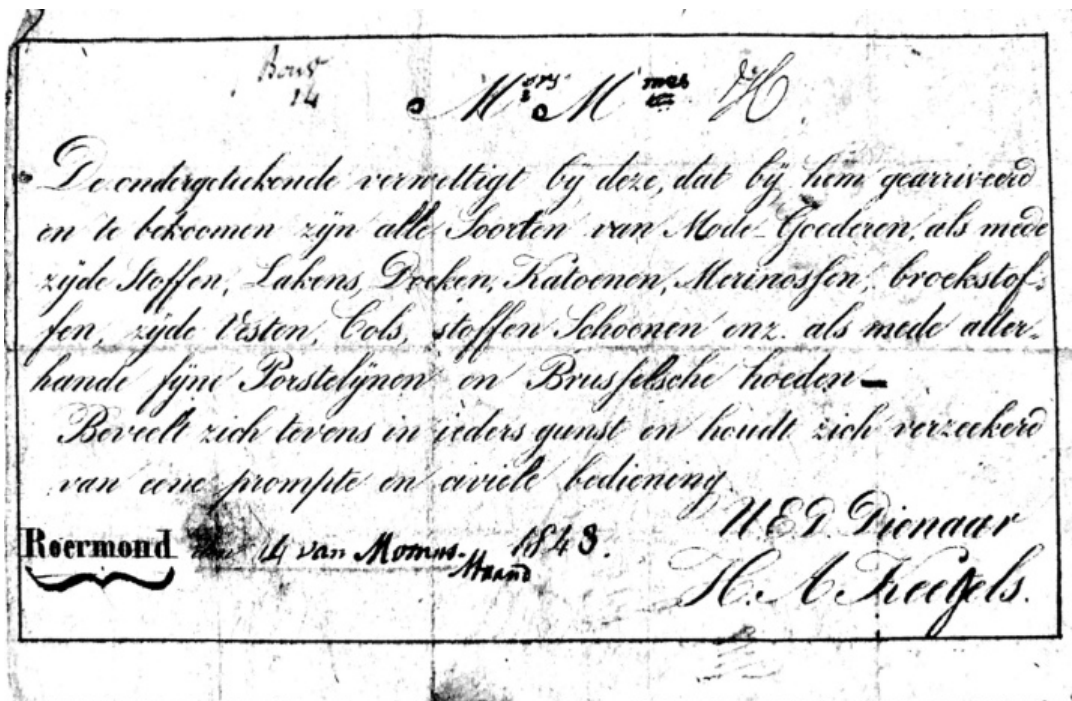 14
De ondergetekende verwittigt by deze, dat bij hem gearriveerd
en te bekoomen zyn alle Soorten van Mode-Goederen, als mede
zijde Stoffen, Lakens, Doeken, Katoenen, Merinossen, broekstof-
fen, zijde Vesten, Cols, stoffen Schoenen enz. als mede aller-
hande fyne Porstelijnen en Brusselsche hoeden
Beveelt zich tevens in ieders gunst en houdt zich verzeekerd
van eene prompte en civiele bediening
U E D. Dienaar
Roermond 14 van Momus- 1843.
Maand
H. A.